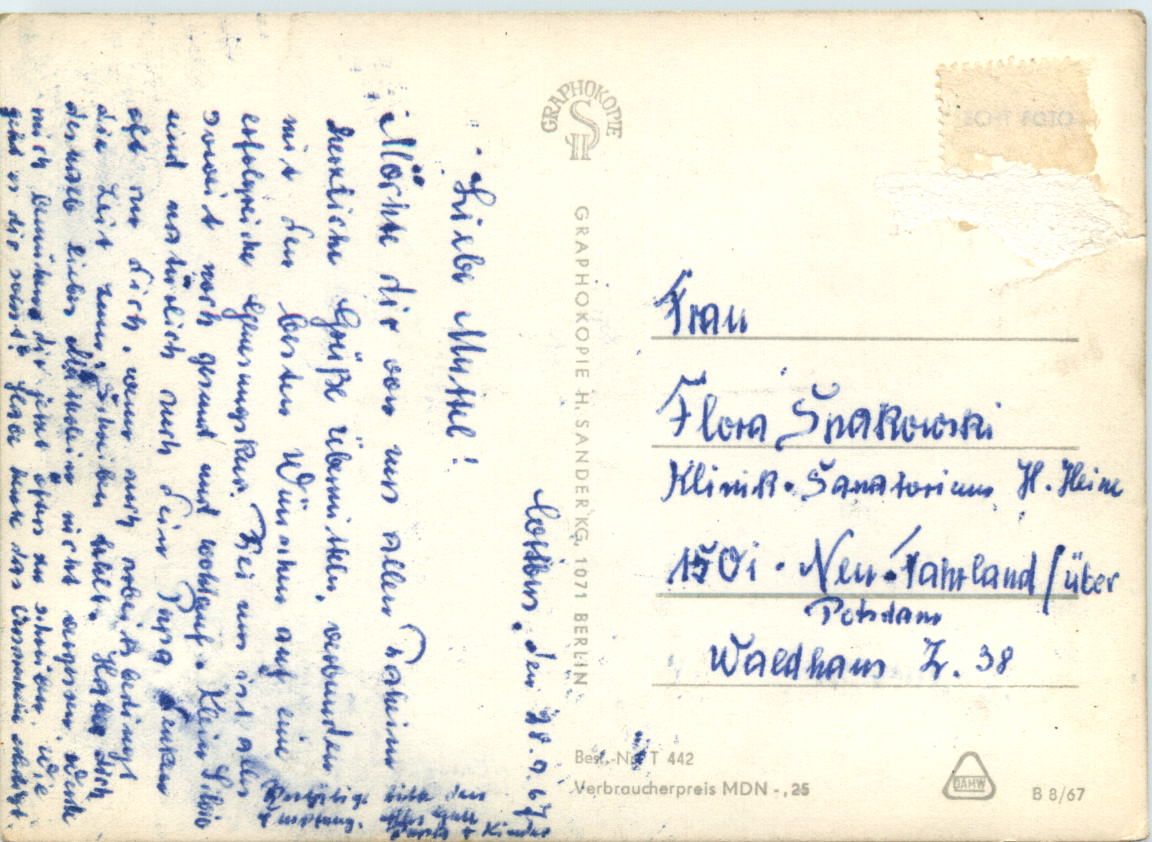 Cottbus, den 28.9.67
Liebe Muttel!
Möchte dir von uns allen daheim
herzliche Grüße übermitteln, verbunden
mit den besten Wünschen auf eine
erfolgreiche Genesungskur. Bei uns ist alles
soweit noch gesund und wohlauf. Klein Silvio
und natürlich auch Dein Papa denken
oft an Dich, wenn auch arbeitsbedingt
die Zeit zum Schreiben fehlt. Habe Dich
deshalb liebes Muttilein nicht vergessen. Werde
mich bemühen dir jetzt öfters zu schreiben. Wie
geht es dir sonst? Habe heut das
Bestätige bitte den
Empfang. Alles Gute
+ Kinder
GRAPHOKOPIE
HS
GRAPHOKOPIE H. SANDER KG, 1071 BERLIN
Frau
Flora Spakowski
Klinik-Sanatorium H. Heine
1501 - Neu-Fahrland / über
Potsdam
Waldhaus Z. 38
Best.-Nr. T 442
Verbraucherpreis MDN -,25
DAMW
B 8/67